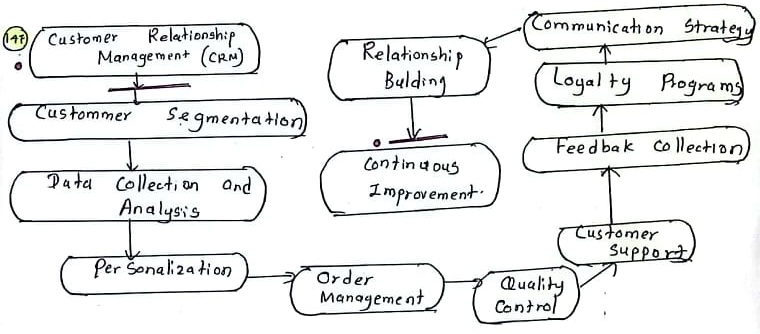 147
Customer Relationship
Management (CRM)
Custommer Segmentation
Data Collection and
Analysis
Personalization
Order
Management
Quality
Control
Customer
Support
Feedbak Collection
Loyalty Programs
Communication Strategy
Relationship
Bulding
Continuous
Improvement.